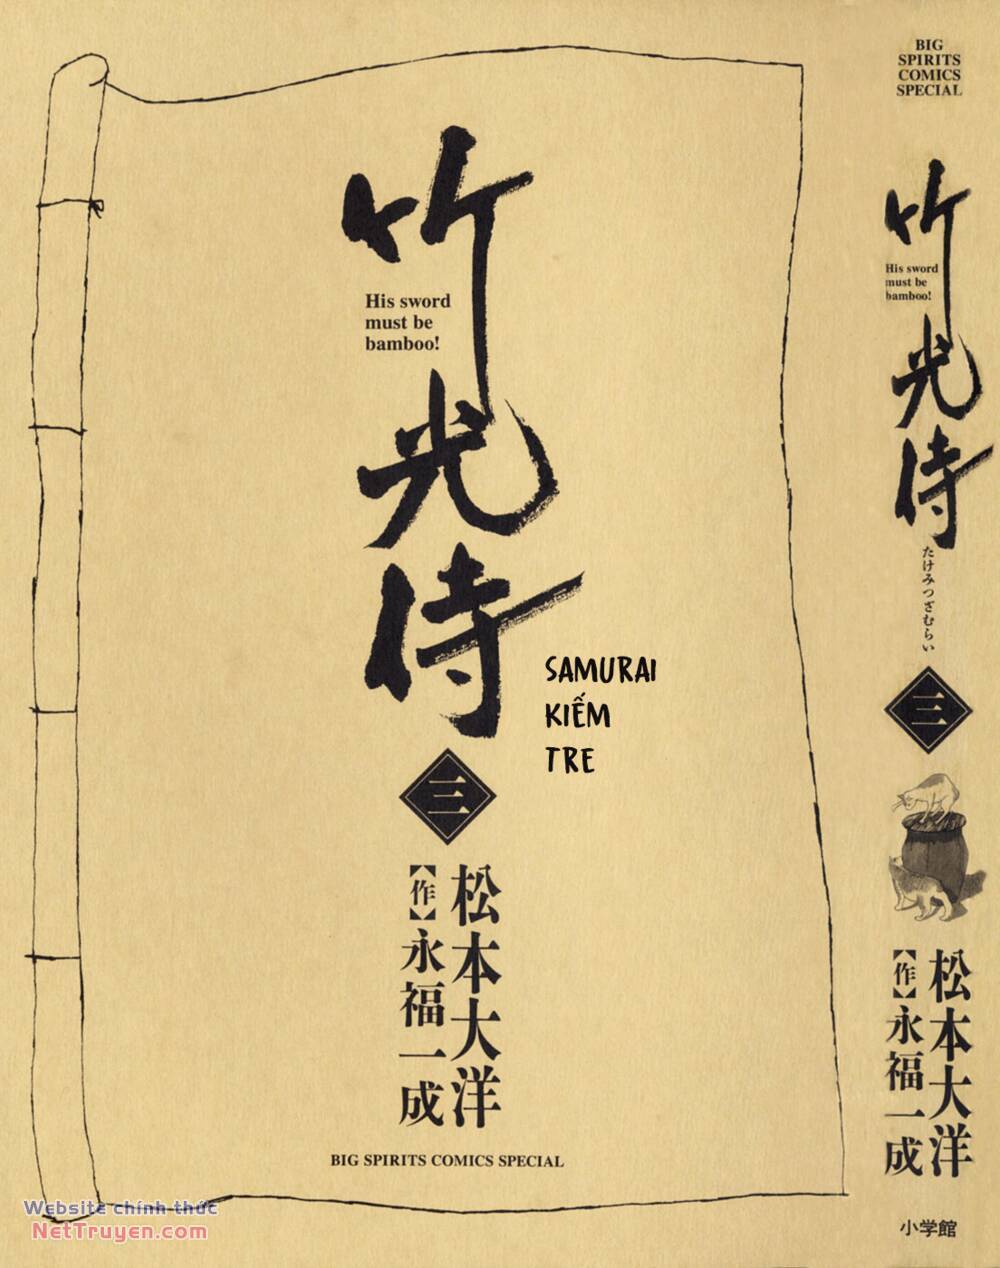 竹光侍
His sword
must be
bamboo!
SAMURAI
KIẾM
TRE
三
松本大洋
【作】永福一成
BIG SPIRITS COMICS SPECIAL
BIG
SPIRITS
COMICS
SPECIAL
竹光侍
His sword
must be
bamboo!
たけみつざむらい
三
松本大洋
【作】永福一成
小学館
Website chính thức
NetTruyen.com